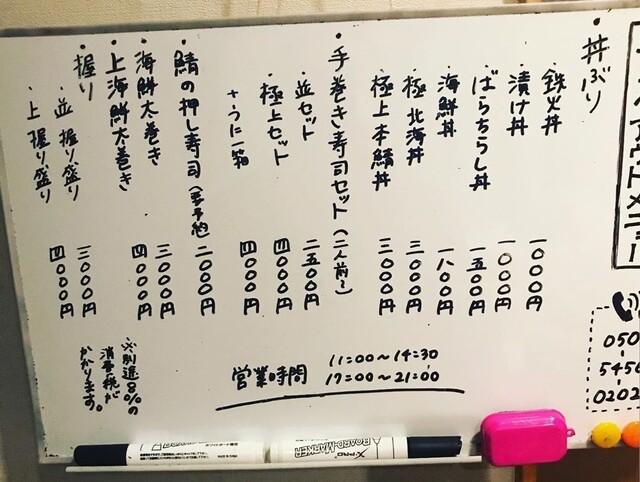 メニュー
050
5456
0202
・丼ぶり
・鉄火丼 一〇〇〇円
・漬け丼 一〇〇〇円
・ばらちらし丼 一五〇〇円
・海鮮丼 一八〇〇円
・極 北海丼 三〇〇〇円
・極上本鮪丼 三〇〇〇円
・手巻き寿司セット(二人前〜)
・並セット 二五〇〇円
・極上セット 四〇〇〇円
+うに一箱 四〇〇〇円
・鯖の押し寿司(要予約) 二〇〇〇円
・海鮮太巻き 三〇〇〇円
・上海鮮太巻き 四〇〇〇円
・握り
・並握り盛り 三〇〇〇円
・上握り盛り 四〇〇〇円
営業時間
11:00〜14:30
17:00〜21:00
※別途8%の
消費税が
かかります。
BOARD-MARKER